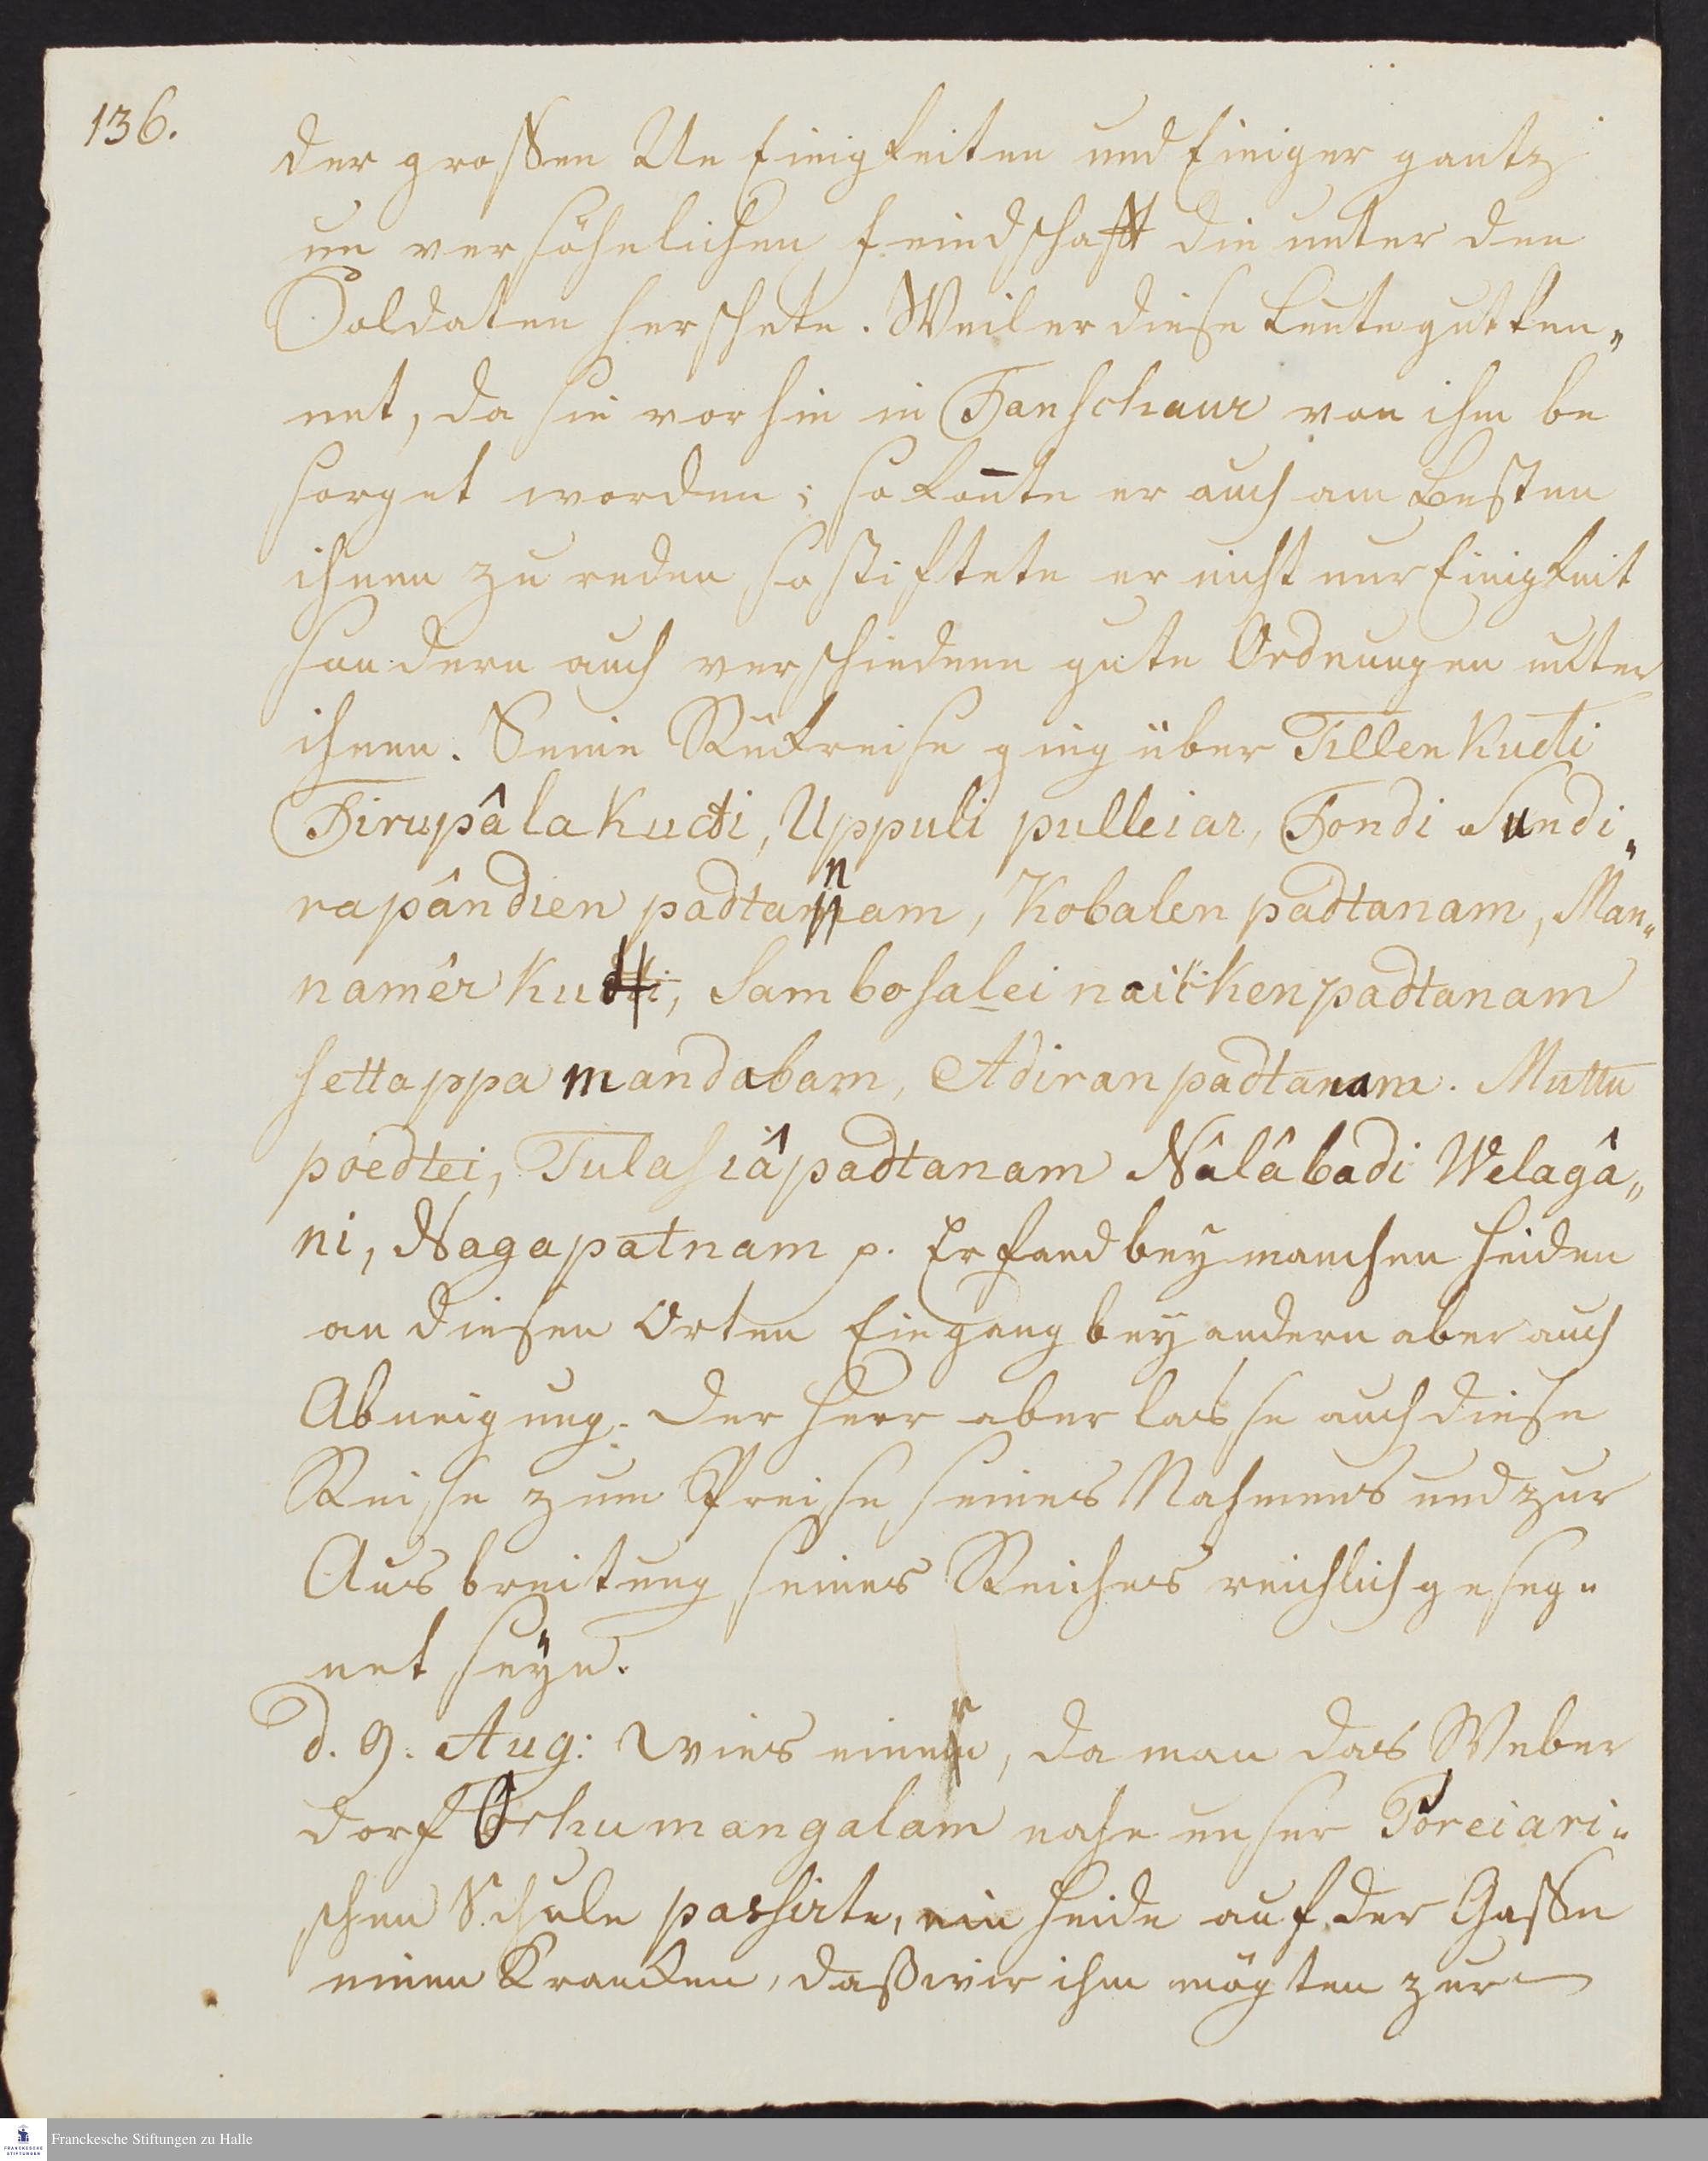 136.
der großen Un Einigkeiten und Einiger gantz
un versöhnlichen Feindschafft die unter den
Soldaten herschete. Weil er diese Leute gut ken„
net, da sie vorhin in Tanschaur von ihm be
sorget worden; so kon̄te er auch am Besten
ihnen zu reden so stiftete er nicht nur Einigkeit
sondern auch verschiedene gute Ordnungen unter
ihnen. Seine Rükreise ging über Tillen Kudti
Tirupâla Kudti, Uppuli pulleiar, Tondi Sundi„
rapândien padtanam, Kobalen padtanam, Man„
namêr Kudti, Sambosalei naicken padtanam
settappa mandabam, Adiran padtanam. Muttu
poedtei, Tulasiâpadtanam Nâlâbadi Welagâ„
ni, Nagapatnam p. Er fand bey manchen Heiden
an diesen Orten Eingang bey andern aber auch
Abneigung. Der Herr aber lasse auch diese
Reise zum Preise seines Nahmens und zur
Ausbreitung seines Reiches reichlich geseg„
net seyn.
d. 9. Aug: wies einer, da man das Weber
dorf Orhumangalam nahe unser Poreiari„
schen Schule passirte, ein Heide auf der Gaßen
einen Krancken, daß wir ihm mögten zur
Franckesche Stiftungen zu Halle
FRANCKESCHE
STIFTUNGEN